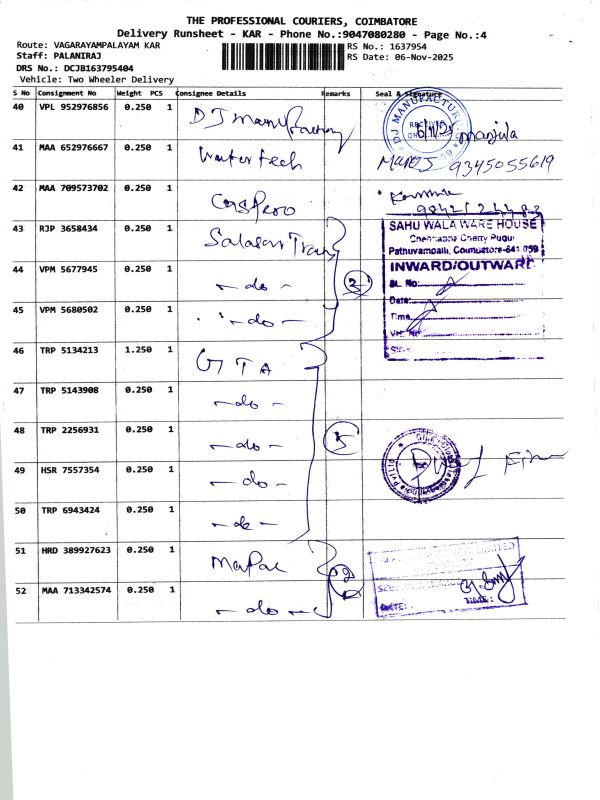 THE PROFESSIONAL COURIERS, COIMBATORE
Delivery Runsheet - KAR - Phone No.:9047080280 - Page No.:4
Route: VAGARAYAMPALAYAM KAR
RS No.: 1637954
Staff: PALANIRAJ
RS Date: 06-Nov-2025
DRS No.: DCJB163795404
Vehicle: Two Wheeler Delivery
S No Consignment No Weight PCS Consignee Details Remarks Seal & Signature
40 VPL 952976856 0.250 1 DJ Manufacturing
DJ MANUFACTUR
Manjula
41 MAA 652976667 0.250 1 Watertech 9345055619
42 MAA 709573702 0.250 1
43 RJP 3658434 0.250 1 Salasar Trans
SAHU WALA WARE HOUSE
Chennappa Chetty Pudur
Pathuvampalli, Coimbatore-641 059
44 VPM 5677945 0.250 1 - do - 3
INWARD/OUTWARD
SL. No:
Date:
45 VPM 5680502 0.250 1 - do -
Time
46 TRP 5134213 1.250 1 GTA
47 TRP 5143908 0.250 1 - do -
48 TRP 2256931 0.250 1 - do - 5
49 HSR 7557354 0.250 1 - do -
50 TRP 6943424 0.250 1 - do -
51 HRD 389927623 0.250 1 2
LIMITED
52 MAA 713342574 0.250 1 - do -
DATE: TIME: